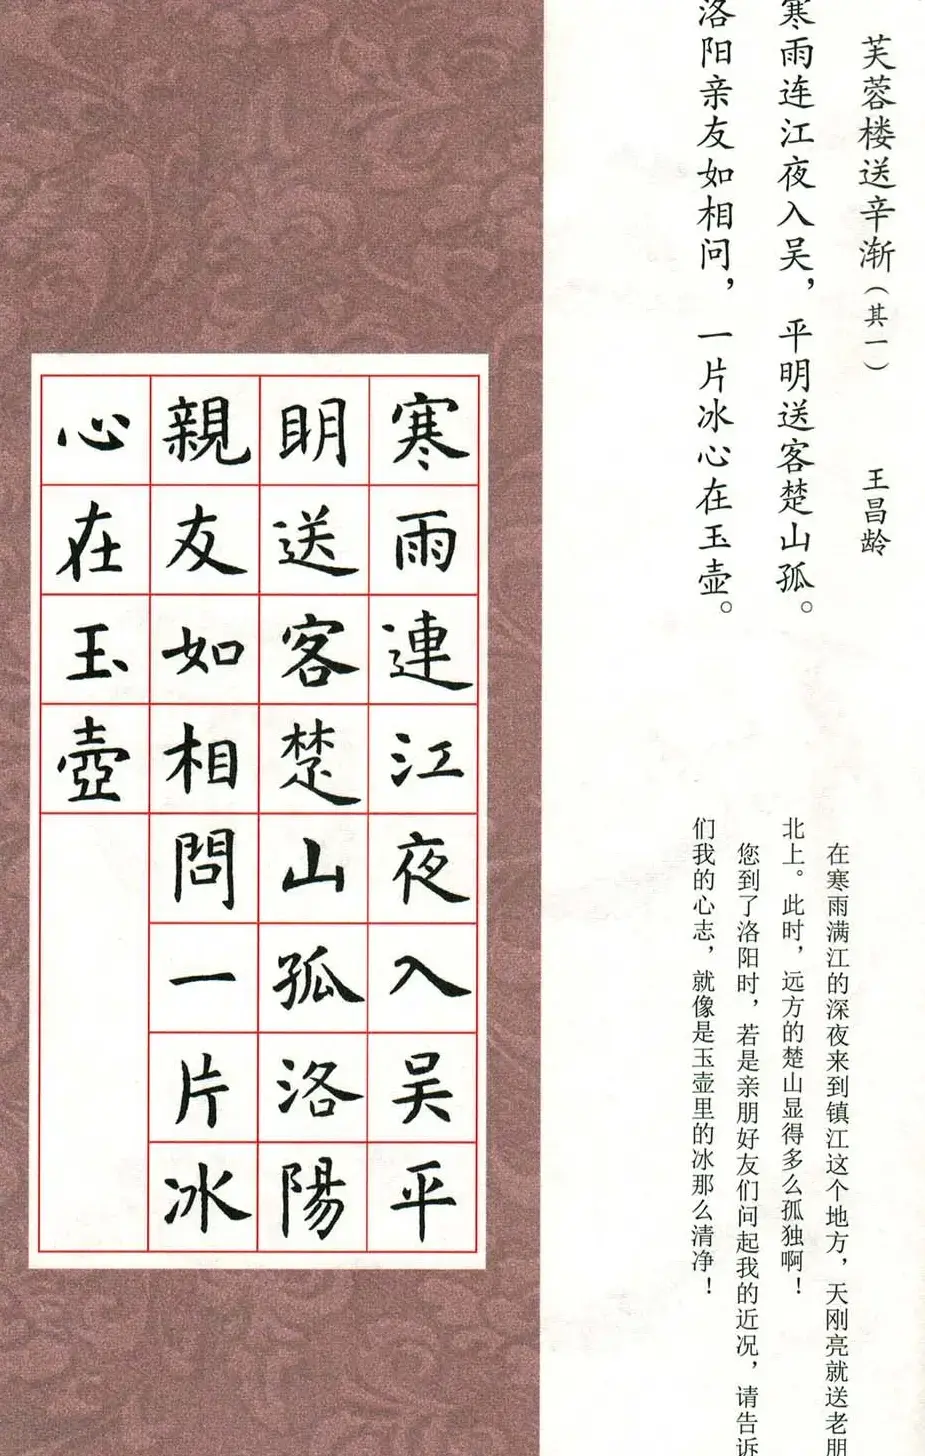 芙蓉楼送辛渐（其一） 王昌龄
寒雨连江夜入吴，平明送客楚山孤。
洛阳亲友如相问，一片冰心在玉壶。
在寒雨满江的深夜来到镇江这个地方，天刚亮就送老朋
北上。此时，远方的楚山显得多么孤独啊！
您到了洛阳时，若是亲朋好友们问起我的近况，请告诉
们我的心志，就像是玉壶里的冰那么清净！
寒雨連江夜入吴平
明送客楚山孤洛陽
親友如相問一片冰
心在玉壺